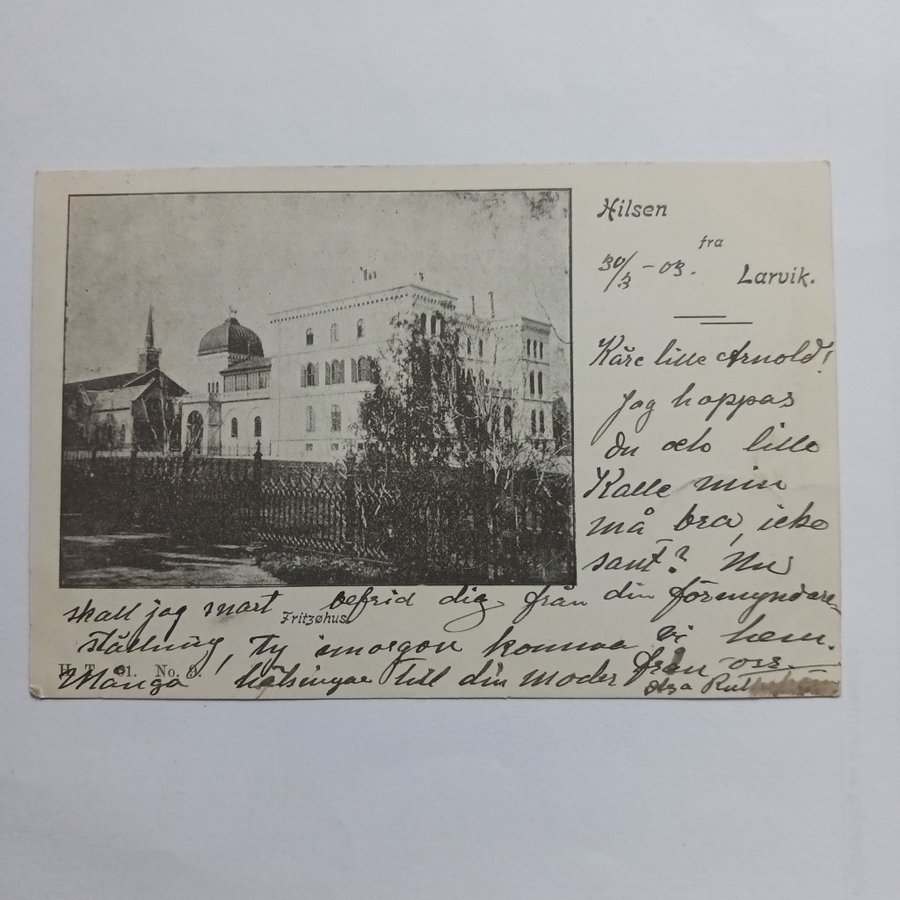 Hilsen
fra
30/3 - 03.
Larvik.
Käre lille Arnold!
Jag hoppas
du och lille
Kalle min
må bra, icke
sant? Nu
skall jag snart befrid dig från din förmyndare-
Fritzøhus
ställning, Ty imorgon komma vi hem.
H. T. 01. No. 9.
Många hälsningar till din moder från oss.
Olga